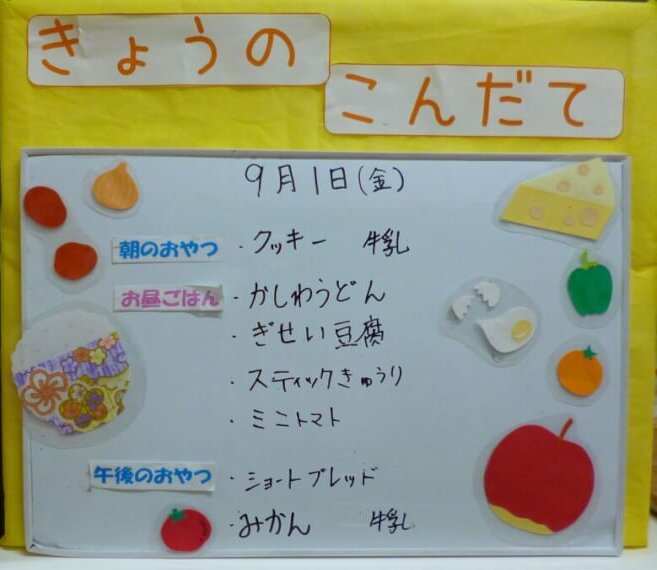 きょうの
こんだて
9月1日(金)
朝のおやつ ・クッキー 牛乳
お昼ごはん ・かしわうどん
・ぎせい豆腐
・スティックきゅうり
・ミニトマト
午後のおやつ ・ショートブレッド
・みかん 牛乳